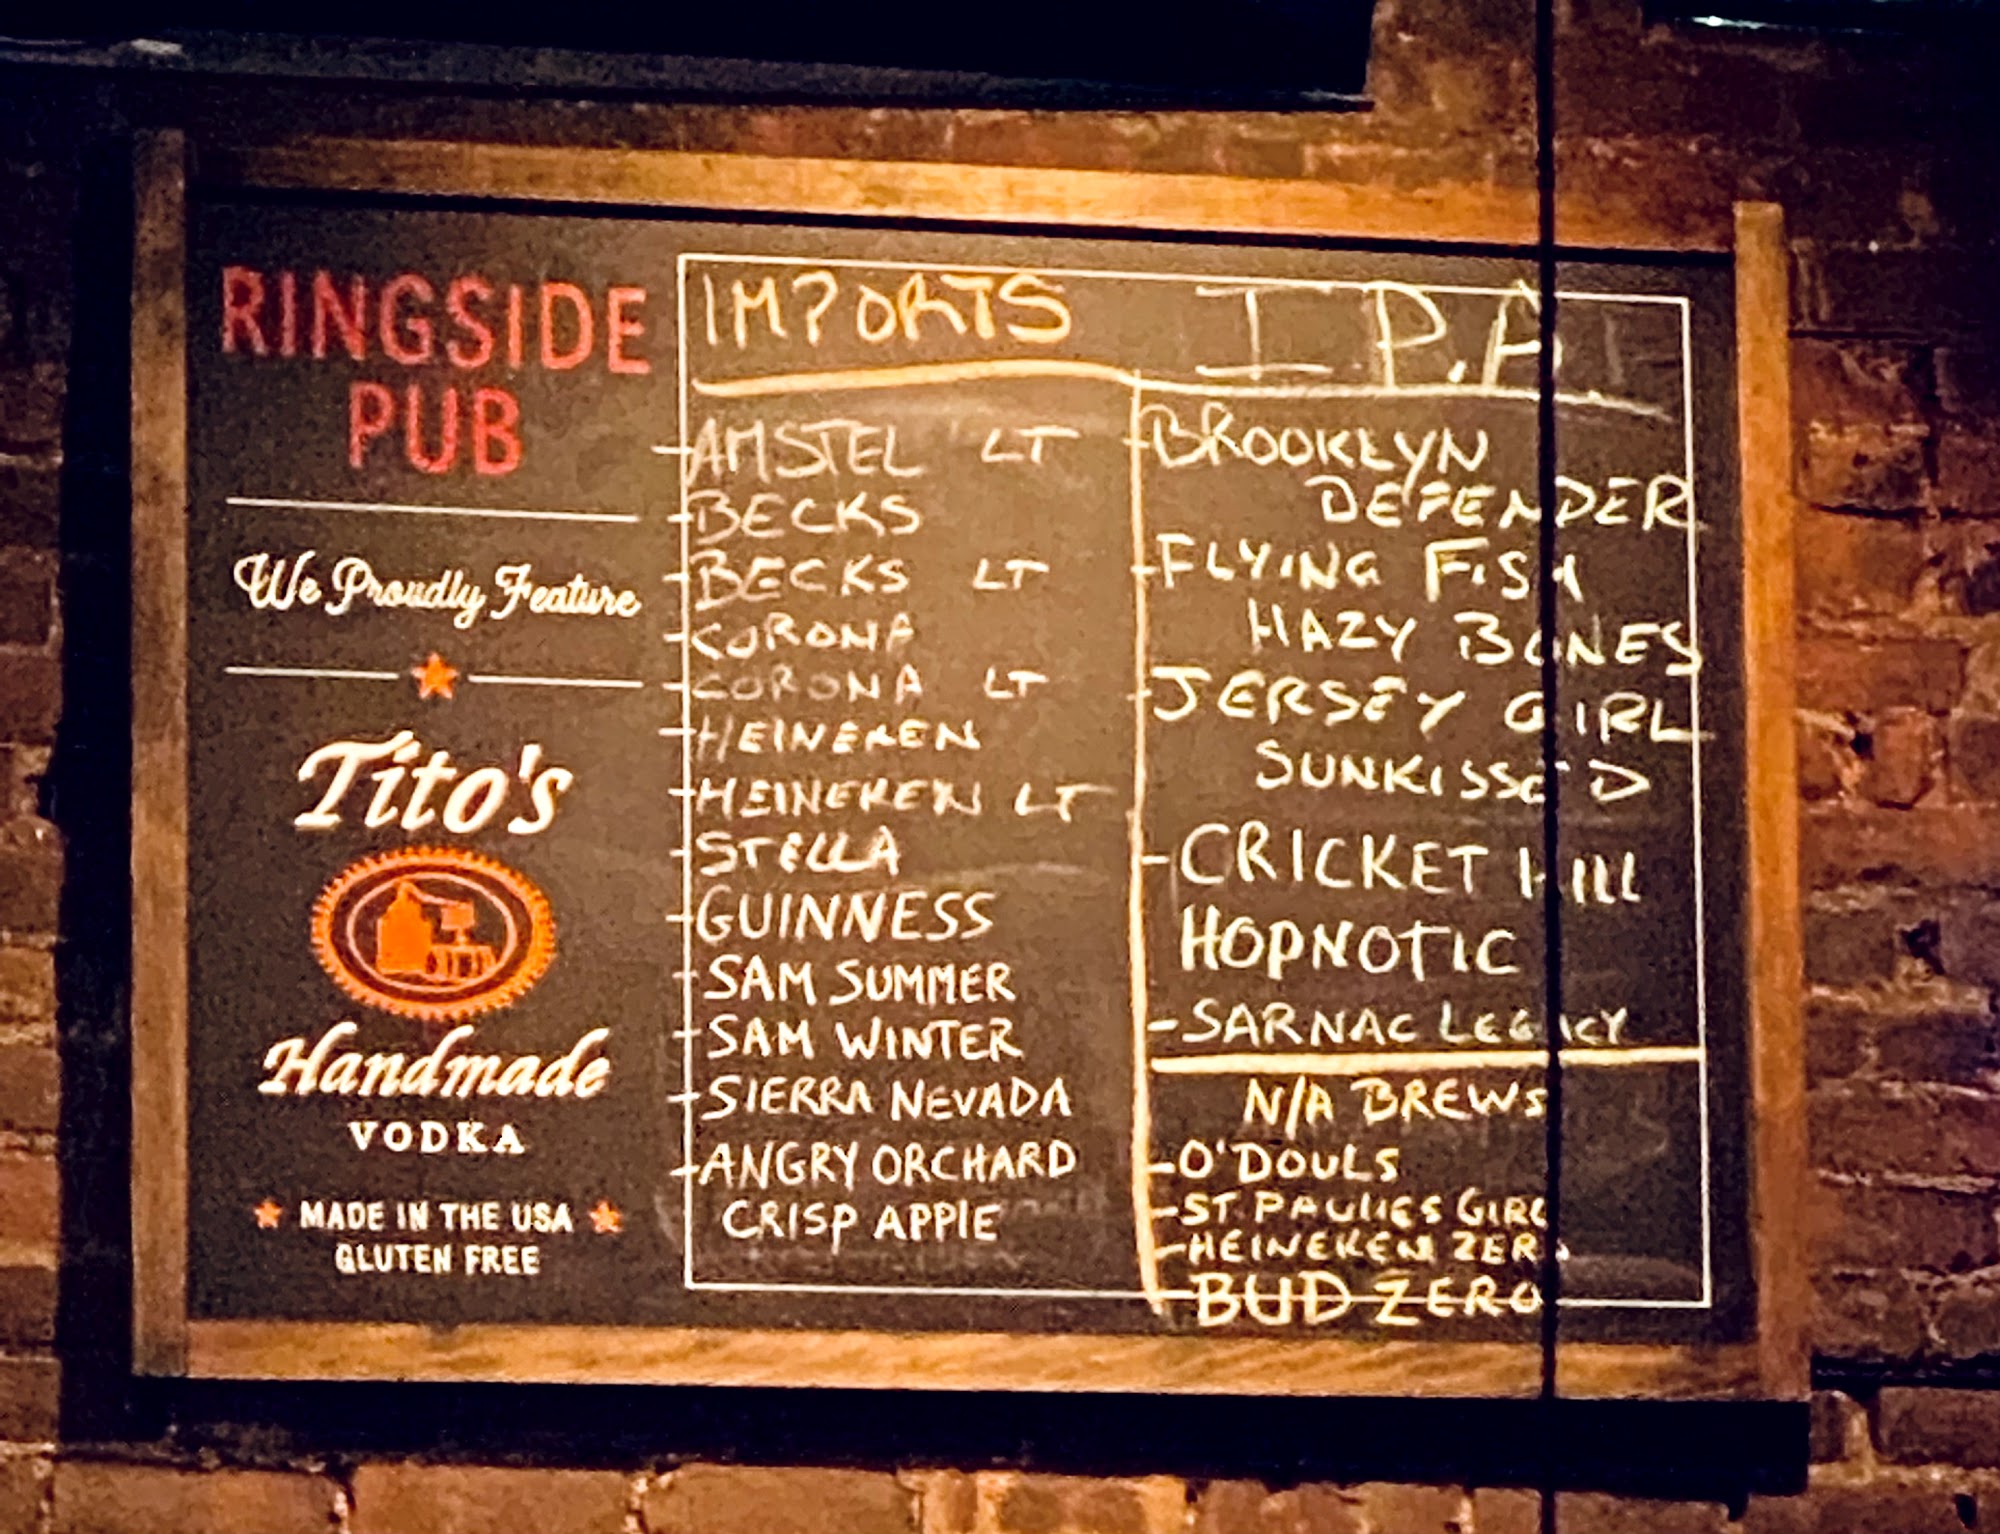 RINGSIDE
PUB
We Proudly Feature
Tito's
Handmade
VODKA
MADE IN THE USA
GLUTEN FREE
IMPORTS
-AMSTEL LT
-BECKS
-BECKS LT
-CORONA
-CORONA LT
-HEINEKEN
-HEINEKEN LT
-STELLA
-GUINNESS
-SAM SUMMER
-SAM WINTER
-SIERRA NEVADA
-ANGRY ORCHARD
CRISP APPLE
I.P.A.
-BROOKLYN
DEFENDER
-FLYING FISH
HAZY BONES
-JERSEY GIRL
SUNKISSED
-CRICKET HILL
HOPNOTIC
-SARNAC LEGACY
N/A BREWS
-O'DOULS
-ST. PAULIES GIRL
-HEINEKEN ZERO
-BUD ZERO